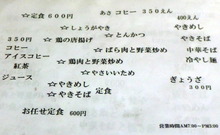 あさコーヒー 350えん
☆定食600円 400えん
☆しょうがやき やきめし
☆鶏の唐揚げ ☆とんかつ やきそば
350円 ☆ばら肉と野菜炒め 中華そば
コーヒー ☆鶏肉と野菜炒め 冷やし麺
アイスコーヒー
紅茶 ☆やさいいため
ジュース ☆やきめし ぎょうざ
☆やきそば 300円
お任せ定食 600円
営業時間AM7:00〜PM3:00